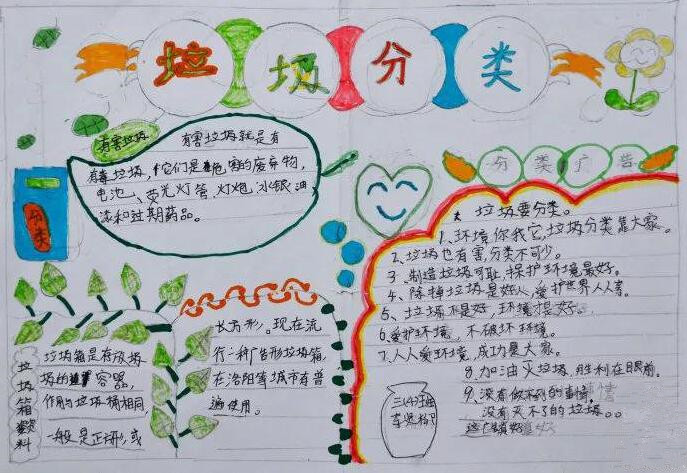 垃圾分类
有害垃圾
有害垃圾就是有
有毒垃圾,它们是危害的废弃物,
电池、荧光灯管、灯炮、水银、油
漆和过期药品。
分类
分类广告
垃圾要分类。
1、环境你我它,垃圾分类靠大家。
2、垃圾也有害,分类不可少。
3、制造垃圾可耻,保护环境最好。
4、除掉垃圾是好人,爱护世界人人害。
5、垃圾不是好,环境才是好。
6、爱护环境,不破坏环境。
7、人人爱环境,成功是大家。
8、加油火垃圾,胜利在眼前。
9、没有做不到的事情,
没有灭不了的垃圾。
三(4)班
垃圾箱资料
垃圾箱是存放垃
圾的容器,
作用与垃圾桶相同,
一般是正方形,或
长方形。现在流
行一种广告形垃圾箱,
在洛阳等城市有普
遍使用。